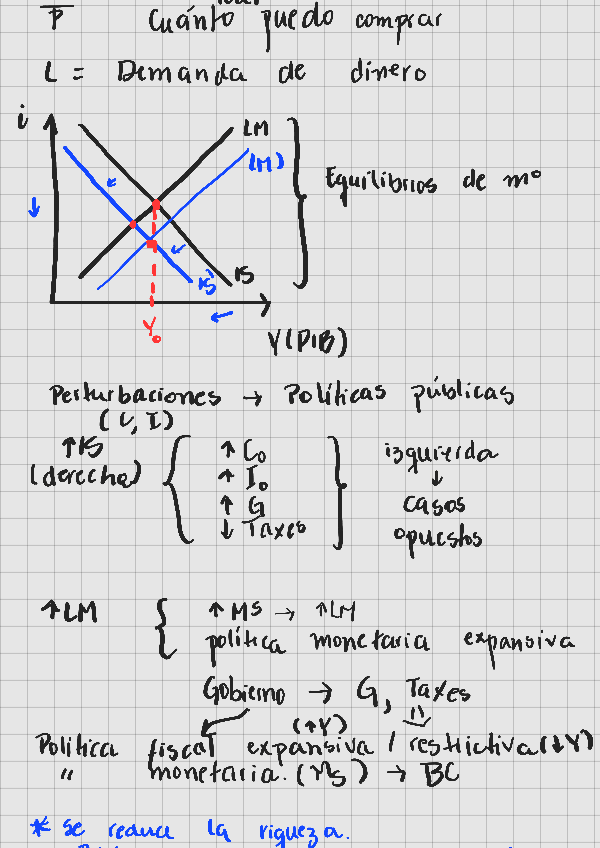 P Cuánto puedo comprar
L = Demanda de dinero
i
LM
(M)
Equilibrios de mº
IS
IS'
Y₀
Y(PIB)
Perturbaciones → Políticas públicas
(C, I)
↑IS
(derecha)
↑ C₀
↑ I₀
↑ G
↓ Taxes
izquierda
↓
casos
opuestos
↑LM
↑ MS → ↑LM
política monetaria expansiva
Gobierno → G, Taxes
(↑Y)
Política fiscal expansiva / restrictiva (↓Y)
" monetaria. (Ms) → BC
* se reduce la riqueza.